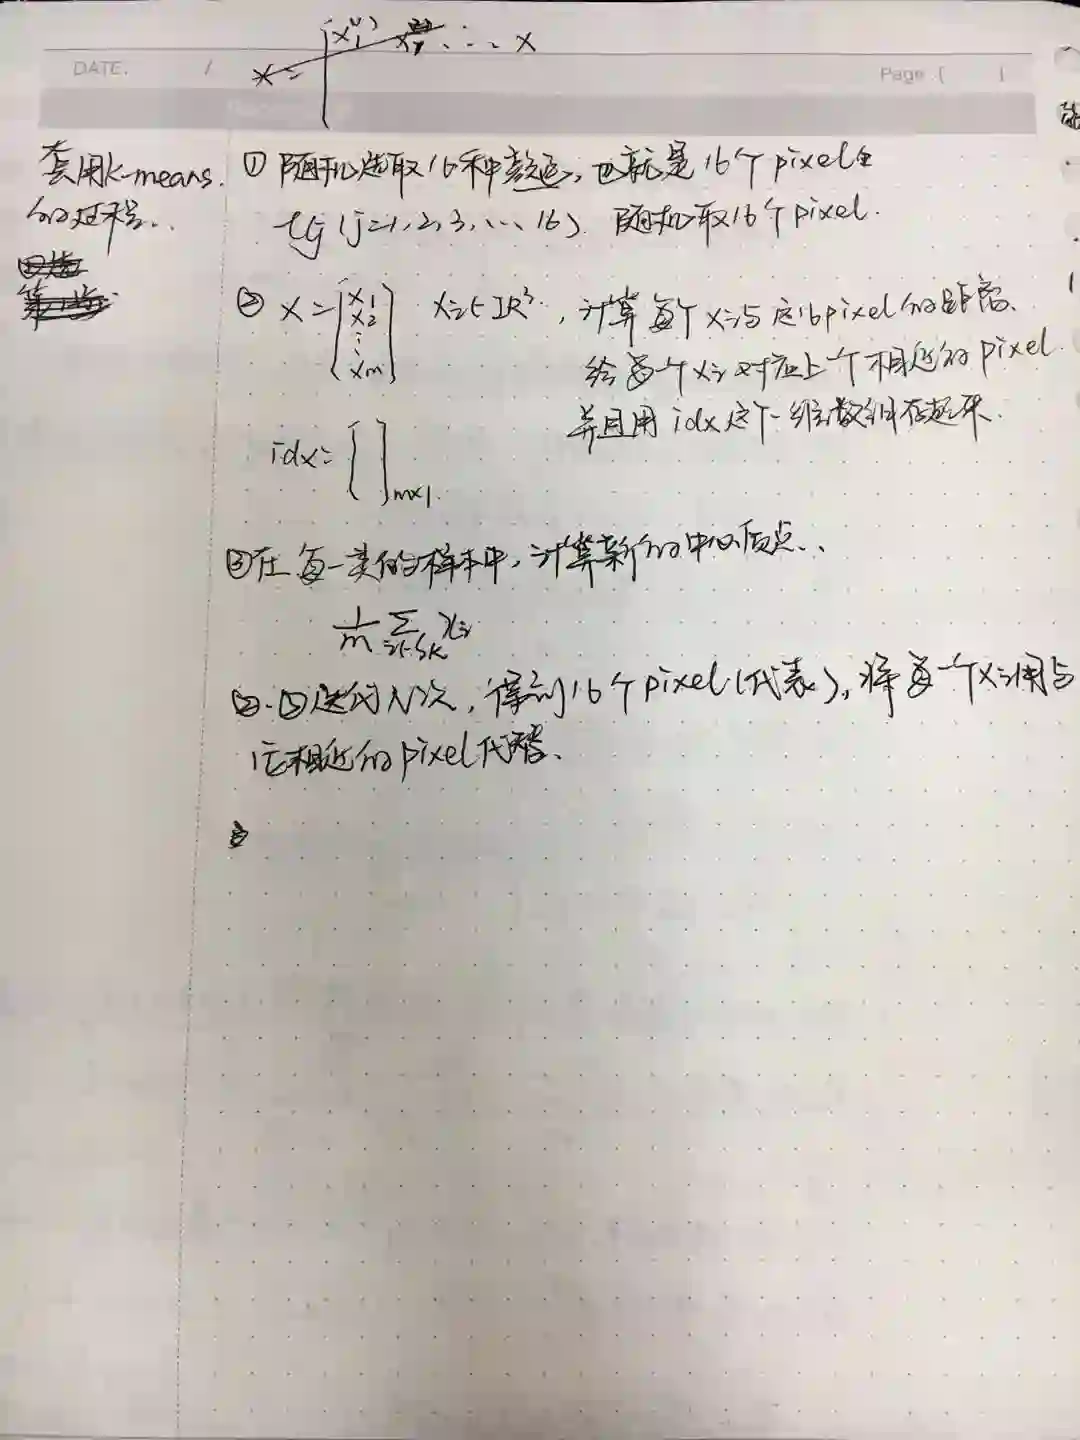 DATE. /
Page ( )
套用k-means.
的过程..
① 随机选取16种颜色, 也就是16个pixel
(j=1,2,3,...16) 随机取16个pixel.
② X = [x1 x2 ⋮ xm] xi∈IR³, 计算每个xi与这16pixel的距离、
给每一个xi对应上一个相近的pixel
并且用idx这个一维数组存起来.
idx= [ ]mx1.
③在每一类的样本中, 计算新的中心质点..
1/m Σ i∈Sk xi
②.③迭代N次, 得到16个pixel(代表), 将每一个xi用与
它相近的pixel代替.